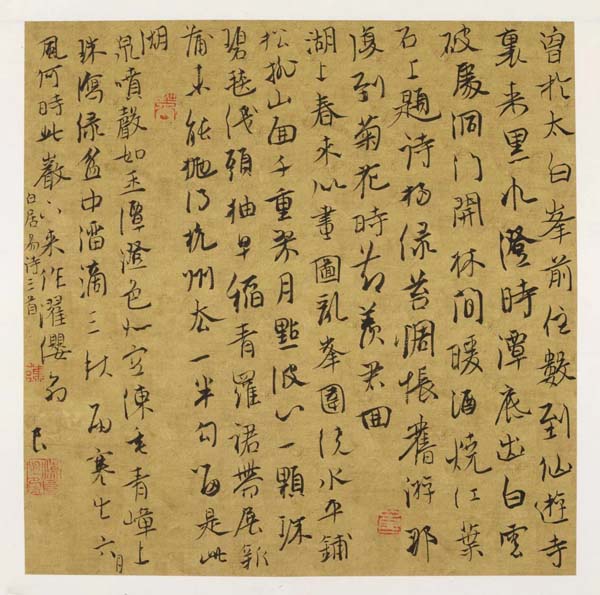 曾於太白峯前住數到仙遊寺
裏來黑水澄時潭底出白雲
破處洞門開林間暖酒燒紅葉
石上題詩掃綠苔惆悵舊遊那
復到菊花時節羨君回
湖上春來似畫圖亂峯圍繞水平鋪
松排山面千重翠月點波心一顆珠
碧毯綫頭抽早稻青羅裙帶展新
蒲未能拋得杭州去一半勾留是此
湖
泉噴聲如玉潭澄色似空練垂青嶂上
珠瀉綠盆中溜滴三秋雨寒生六月
風何時此巖下來作濯纓翁
白居易詩三首